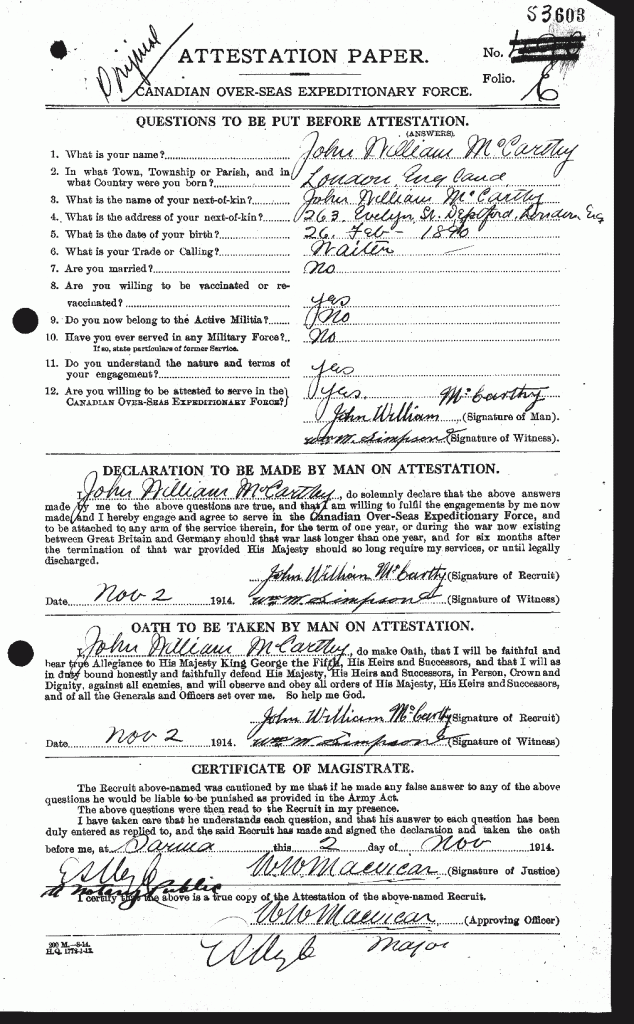 53603
Original
ATTESTATION PAPER.
No.
Folio. E
CANADIAN OVER-SEAS EXPEDITIONARY FORCE.
QUESTIONS TO BE PUT BEFORE ATTESTATION.
(ANSWERS).
1. What is your name? John William McCarthy
2. In what Town, Township or Parish, and in what Country were you born? London England
3. What is the name of your next-of-kin? John William McCarthy
4. What is the address of your next-of-kin? 263 Evelyn St. Deptford, London Eng
5. What is the date of your birth? 26. Feb - 1890
6. What is your Trade or Calling? Waiter
7. Are you married? No
8. Are you willing to be vaccinated or re-vaccinated? yes
9. Do you now belong to the Active Militia? No
10. Have you ever served in any Military Force? No
If so, state particulars of former Service.
11. Do you understand the nature and terms of your engagement? yes
12. Are you willing to be attested to serve in the CANADIAN OVER-SEAS EXPEDITIONARY FORCE? yes.
John William McCarthy (Signature of Man).
Wm M. Simpson (Signature of Witness).
DECLARATION TO BE MADE BY MAN ON ATTESTATION.
I, John William McCarthy, do solemnly declare that the above answers
made by me to the above questions are true, and that I am willing to fulfil the engagements by me now
made, and I hereby engage and agree to serve in the Canadian Over-Seas Expeditionary Force, and
to be attached to any arm of the service therein, for the term of one year, or during the war now existing
between Great Britain and Germany should that war last longer than one year, and for six months after
the termination of that war provided His Majesty should so long require my services, or until legally
discharged.
John William McCarthy (Signature of Recruit)
Date Nov 2 1914. Wm M. Simpson (Signature of Witness)
OATH TO BE TAKEN BY MAN ON ATTESTATION.
I, John William McCarthy, do make Oath, that I will be faithful and
bear true Allegiance to His Majesty King George the Fifth, His Heirs and Successors, and that I will as
in duty bound honestly and faithfully defend His Majesty, His Heirs and Successors, in Person, Crown and
Dignity, against all enemies, and will observe and obey all orders of His Majesty, His Heirs and Successors,
and of all the Generals and Officers set over me. So help me God.
John William McCarthy (Signature of Recruit)
Date Nov 2 1914. Wm M. Simpson (Signature of Witness)
CERTIFICATE OF MAGISTRATE.
The Recruit above-named was cautioned by me that if he made any false answer to any of the above
questions he would be liable to be punished as provided in the Army Act.
The above questions were then read to the Recruit in my presence.
I have taken care that he understands each question, and that his answer to each question has been
duly entered as replied to, and the said Recruit has made and signed the declaration and taken the oath
before me, at Sarnia this 2 day of Nov 1914.
W W Macvicar (Signature of Justice)
A Notary Public
I certify that the above is a true copy of the Attestation of the above-named Recruit.
W W Macvicar (Approving Officer)
Major
200 M.—8-14.
H.Q. 1772-1-13.